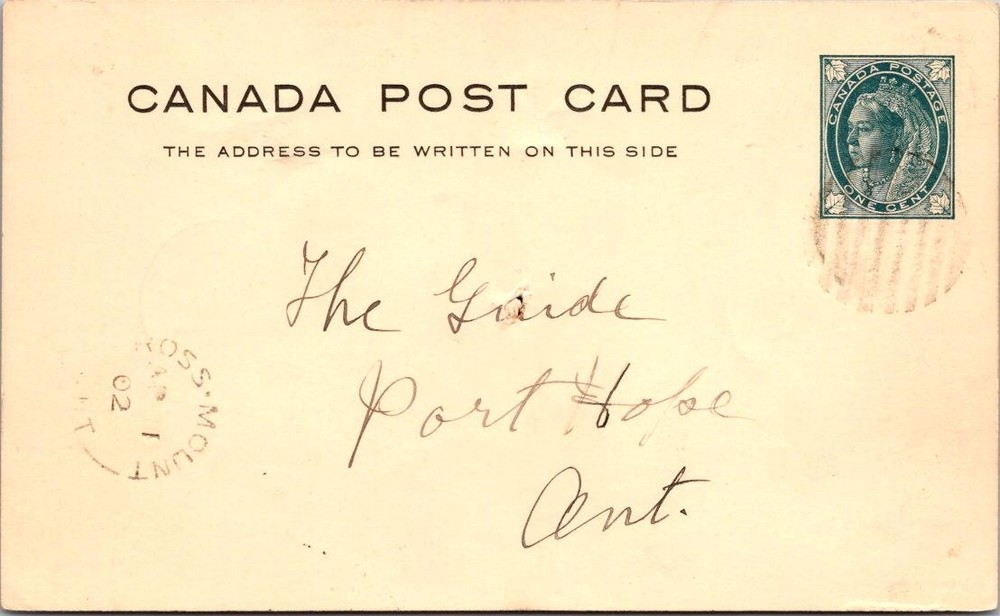 CANADA POST CARD
THE ADDRESS TO BE WRITTEN ON THIS SIDE
CANADA POSTAGE
ONE CENT
The Guide
Port Hope
Ont.
ROSS·MOUNT
AP 1
02